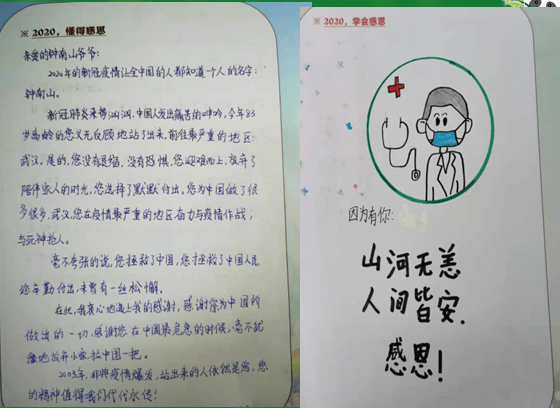 ※ 2020，懂得感恩
亲爱的钟南山爷爷：
2020年的新冠疫情让全中国的人都知道一个人的名字：
钟南山。
新冠肺炎来势汹汹，中国人发出痛苦的呻吟，今年83
岁高龄的您义无反顾地站了出来，前往最严重的地区：
武汉。是的，您没有退缩，没有恐惧，您迎难而上，放弃了
陪伴家人的时光，您选择了默默付出，您为中国做了很
多很多，武汉，您在疫情最严重的地区奋力与疫情作战，
与死神抢人。
毫不夸张的说，您拯救了中国，您拯救了中国人民，
您辛勤付出，未曾有一丝松懈。
在此，我衷心地递上我的感谢，感谢您为中国所
做出的一切，感谢您在中国最危急的时候，毫不犹
豫地放弃小家，拉中国一把。
2003年，非典疫情爆发，站出来的人依然是您，您
的精神值得我们代代永传！
※ 2020，学会感恩
因为有你：
山河无恙
人间皆安.
感恩！